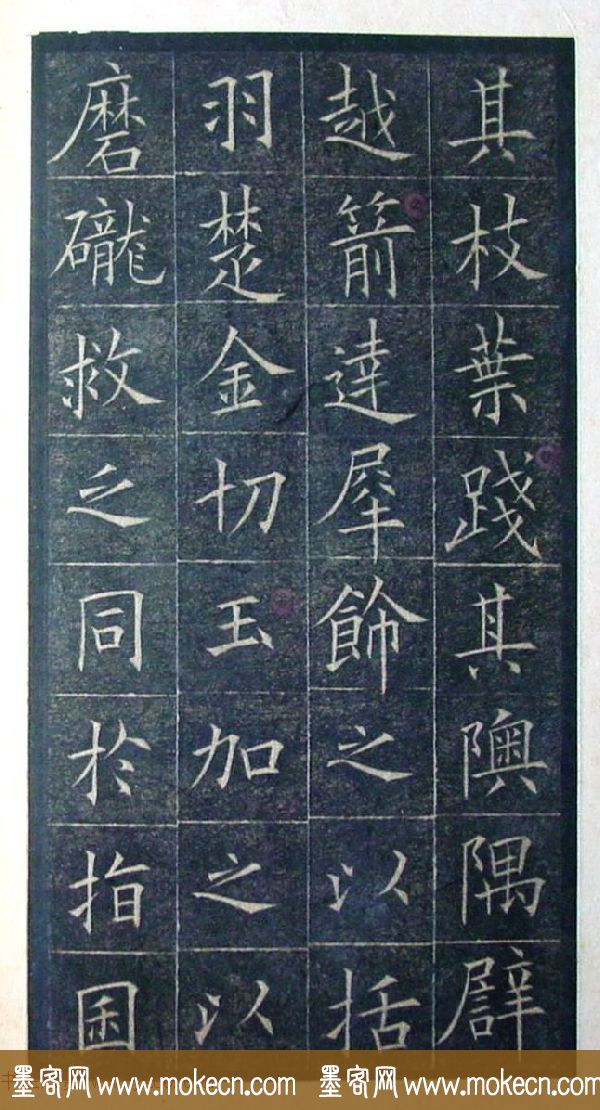 其枝葉踐其隩隅譬
越箭達犀飾之以括
羽楚金切玉加之以
磨礲救之同於指囷
墨客网 www.mokecn.com 墨客网 www.mokecn.com